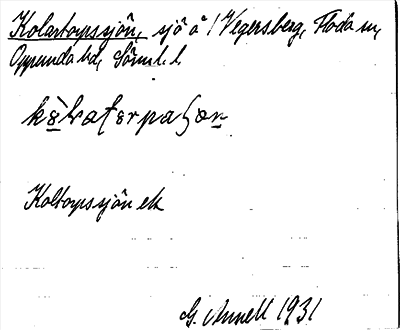 Kolartorpssjön, sjö å 1 Vegersberg, Floda sn,
Oppunda hd, Söml. l.
Koltorpssjön ek
G. Annell 1931